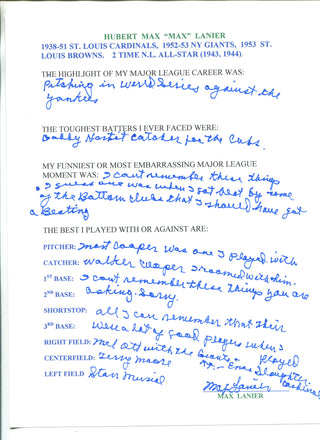 HUBERT MAX "MAX" LANIER
1938-51 ST. LOUIS CARDINALS, 1952-53 NY GIANTS, 1953 ST.
LOUIS BROWNS. 2 TIME N.L. ALL-STAR (1943, 1944).
THE HIGHLIGHT OF MY MAJOR LEAGUE CAREER WAS:
Pitching in World Series against the
Yankees
THE TOUGHEST BATTERS I EVER FACED WERE:
Gabby Hartnet catcher for the Cubs.
MY FUNNIEST OR MOST EMBARRASSING MAJOR LEAGUE
MOMENT WAS: I can't remember these things
I guess one was when I got beat by some
of the Bottom clubs that I should have got
a Beating
THE BEST I PLAYED WITH OR AGAINST ARE:
PITCHER: Mort Cooper was one I played with
CATCHER: Walker Cooper I roomed with him.
1ST BASE: I can't remember these things you are
2ND BASE: asking. Sorry.
SHORTSTOP: all I can remember that their
3RD BASE: were a lot of good players when I
RIGHT FIELD: Mel Ott with the Giants played
CENTERFIELD: Terry Moore Enos Slaughter
LEFT FIELD Stan Musial Cardinals
Max Lanier
MAX LANIER